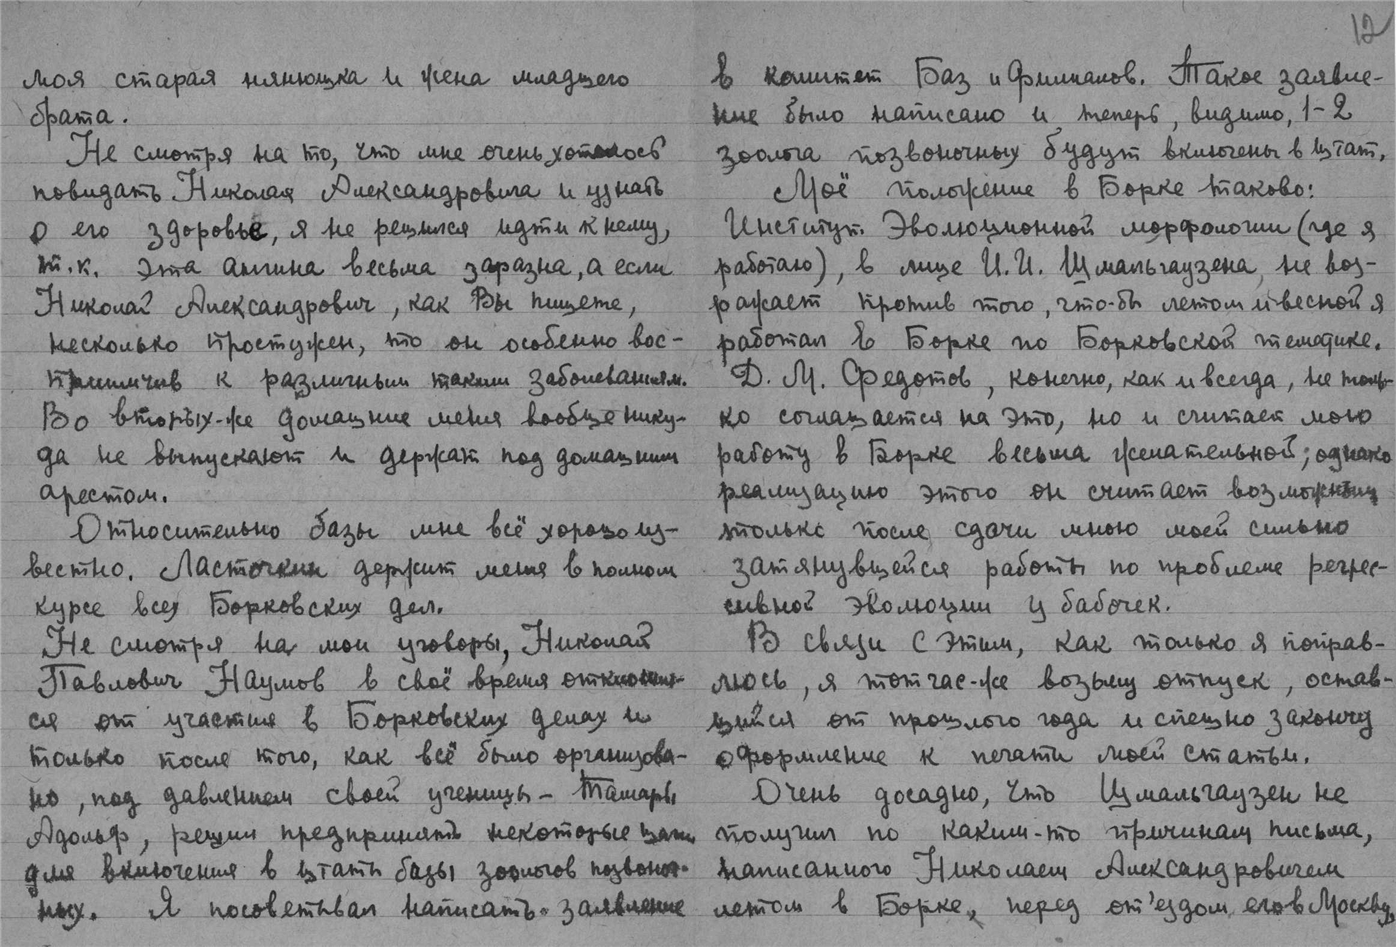 12
моя старая нянюшка и жена младшего
брата.
Не смотря на то, что мне очень хотелось
повидать Николая Александровича и узнать
о его здоровье, я не решился идти к нему,
т.к. эта ангина весьма заразна, а если
Николай Александрович, как Вы пишете,
несколько простужен, то он особенно вос-
приимчив к различным таким заболеваниям.
Во вторых-же домашние меня вообще нику-
да не выпускают и держат под домашним
арестом.
Относительно базы мне всё хорошо из-
вестно. Ласточкин держит меня в полном
курсе всех Борковских дел.
Не смотря на мои уговоры, Николай
Павлович Наумов в своё время отклонил-
ся от участия в Борковских делах и
только после того, как всё было организова-
но, под давлением своей ученицы - Тамары
Адольф, решил предпринять некоторые шаги
для включения в штаты базы зоологов позвоноч-
ных. Я посоветывал написать заявление
в комитет Баз и Филиалов. Такое заявле-
ние было написано и теперь, видимо, 1-2
зоолога позвоночных будут включены в штат.
Моё положение в Борке таково:
Институт Эволюционной морфологии (где я
работаю), в лице И.И. Шмальгаузена, не воз-
ражает против того, что-бы летом и весной я
работал в Борке по Борковской тематике.
Д. М. Федотов, конечно, как и всегда, не толь-
ко соглашается на это, но и считает мою
работу в Борке весьма желательной; однако
реализацию этого он считает возможным
только после сдачи мною моей сильно
затянувшейся работы по проблеме регрес-
сивной эволюции у бабочек.
В связи с этим, как только я поправ-
люсь, я тотчас-же возьму отпуск, остав-
шийся от прошлого года и спешно закончу
оформление к печати моей статьи.
Очень досадно, что Шмальгаузен не
получил по каким-то причинам письма,
написанного Николаем Александровичем
летом в Борке, перед от'ездом его в Москву,